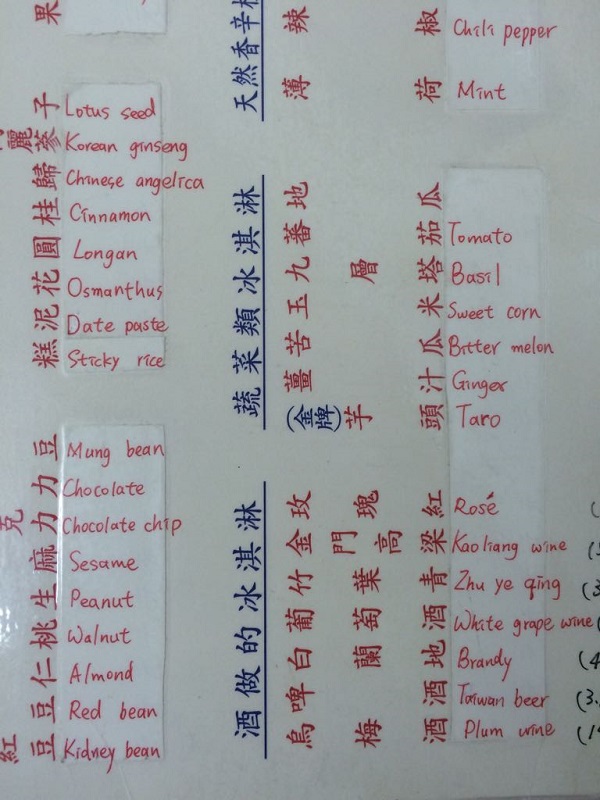 果
子 Lotus seed
麗蔘 Korean ginseng
歸 Chinese angelica
桂 Cinnamon
圓 Longan
花 Osmanthus
泥 Date paste
糕 Sticky rice
豆 Mung bean
力 Chocolate
克力 Chocolate chip
麻 Sesame
生 Peanut
桃 Walnut
仁 Almond
豆 Red bean
紅豆 Kidney bean
天然香辛
辣椒 Chili pepper
薄荷 Mint
蔬菜類冰淇淋
地瓜
蕃茄 Tomato
九層塔 Basil
玉米 Sweet corn
苦瓜 Bitter melon
薑汁 Ginger
(金牌)芋頭 Taro
酒做的冰淇淋
玫瑰紅 Rosé
金門高梁 Kaoliang wine
竹葉青 Zhu ye qing (3
葡萄酒 White grape wine
白蘭地 Brandy (4
啤酒 Taiwan beer (3.
烏梅酒 Plum wine